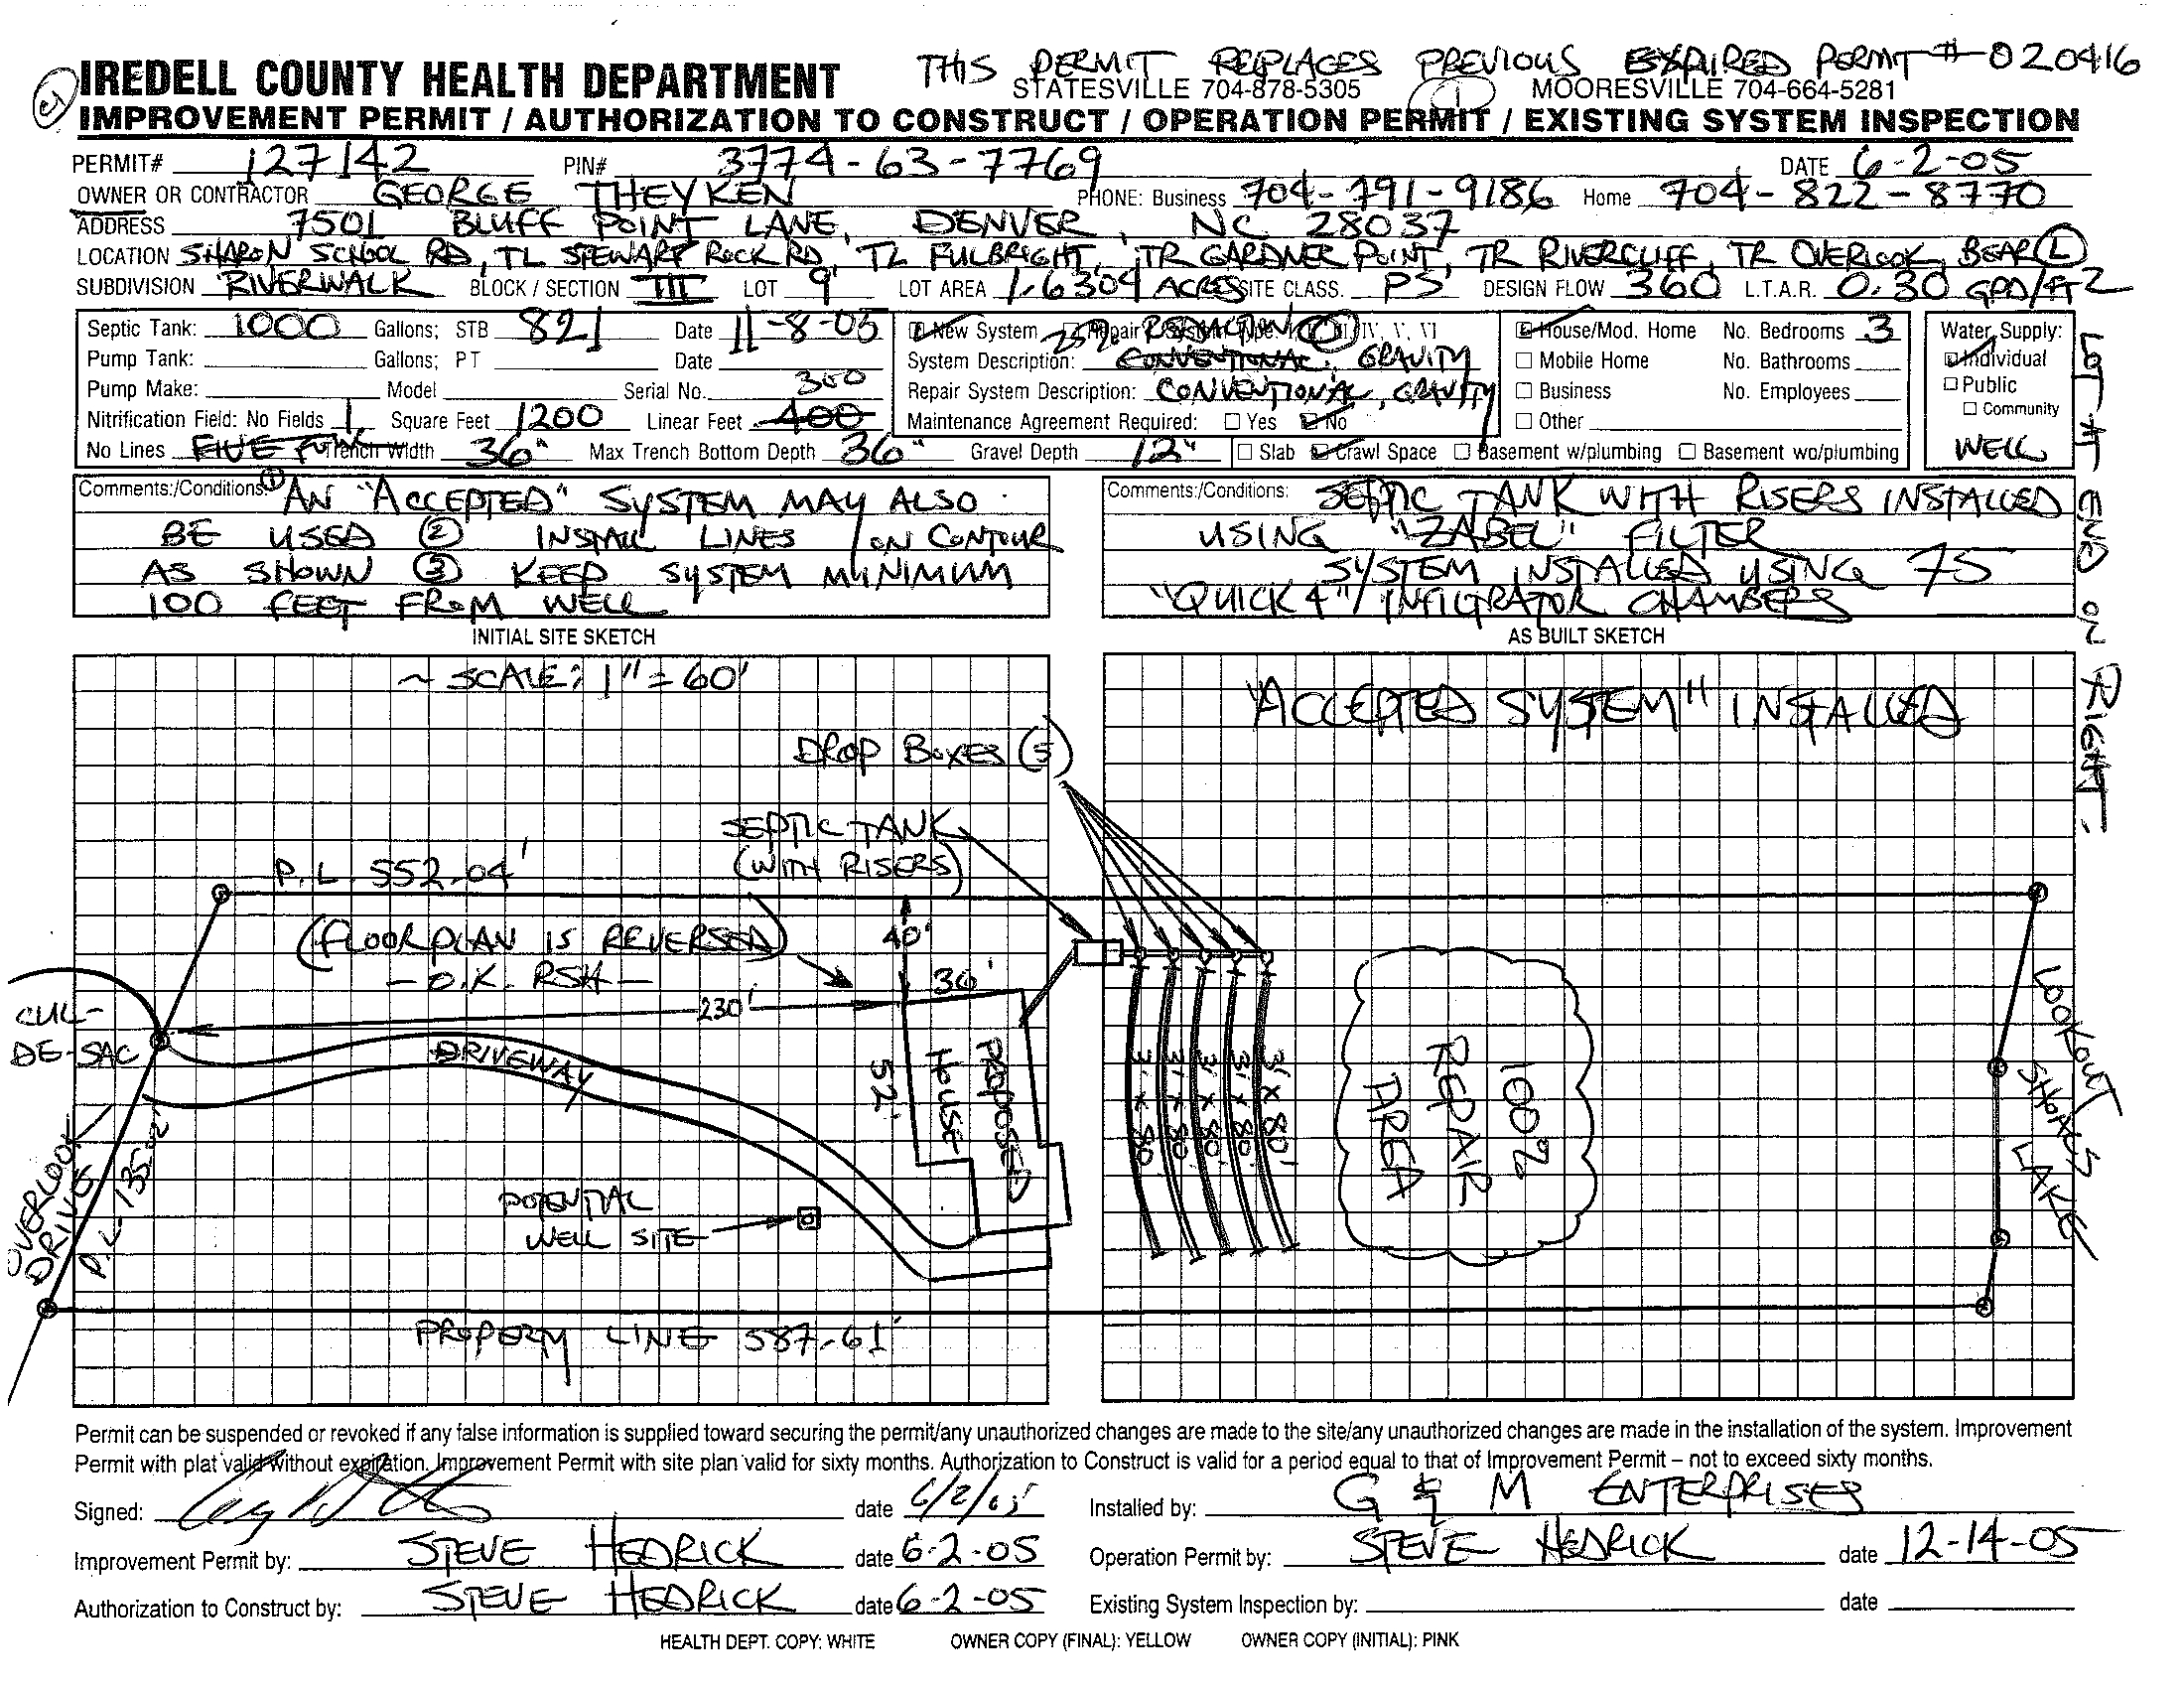 THIS PERMIT REPLACES PREVIOUS EXPIRED PERMIT # 020416
IREDELL COUNTY HEALTH DEPARTMENT STATESVILLE 704-878-5305 MOORESVILLE 704-664-5281
IMPROVEMENT PERMIT / AUTHORIZATION TO CONSTRUCT / OPERATION PERMIT / EXISTING SYSTEM INSPECTION
PERMIT# 127142 PIN# 3774-63-7769 DATE 6-2-05
OWNER OR CONTRACTOR GEORGE THEYKEN PHONE: Business 704-791-9186 Home 704-822-8770
ADDRESS 7501 BLUFF POINT LANE, DENVER, NC 28037
LOCATION SHARON SCHOOL RD, TL STEWART ROCK RD, TL FULBRIGHT, TR GARDNER POINT, TR RIVERCLIFF, TR OVERLOOK, BEAR L
SUBDIVISION RIVERWALK BLOCK / SECTION III LOT 9 LOT AREA 1.6304 ACRES SITE CLASS. PS DESIGN FLOW 360 L.T.A.R. 0.30 GPD/FT2
LOT AT END ON RIGHT.
Septic Tank: 1000 Gallons; STB 821 Date 11-8-05
Pump Tank: Gallons; PT Date
Pump Make: Model Serial No.
300
Nitrification Field: No Fields 1 Square Feet 1200 Linear Feet 400
No Lines FIVE Trench Width 36" Max Trench Bottom Depth 36" Gravel Depth 12"
New System Repair 25% REDUCTION IV, V, VI
System Description: CONVENTIONAL, GRAVITY
Repair System Description: CONVENTIONAL, GRAVITY
Maintenance Agreement Required: Yes No
House/Mod. Home No. Bedrooms 3
Mobile Home No. Bathrooms
Business No. Employees
Other
Slab Crawl Space Basement w/plumbing Basement wo/plumbing
Water Supply:
Individual
Public
Community
WELL
Comments:/Conditions: ① AN "ACCEPTED" SYSTEM MAY ALSO
BE USED ② INSTALL LINES ON CONTOUR
AS SHOWN ③ KEEP SYSTEM MINIMUM
100 FEET FROM WELL
Comments:/Conditions: SEPTIC TANK WITH RISERS INSTALLED
USING "ZABEL" FILTER
SYSTEM INSTALLED USING 75
"QUICK 4" INFILTRATOR CHAMBERS
INITIAL SITE SKETCH
AS BUILT SKETCH
~ SCALE: 1" = 60'
"ACCEPTED SYSTEM" INSTALLED
DROP BOXES (5)
SEPTIC TANK
(WITH RISERS)
P.L. 552.04'
(FLOORPLAN IS REVERSED)
- O.K. RSH -
40'
36'
230'
52'
CUL-
DE-SAC
DRIVEWAY
PROPOSED
HOUSE
3' X 80'
3' X 80'
3' X 80'
3' X 80'
3' X 80'
100%
REPAIR
AREA
LOOKOUT
SHOALS
LAKE
OVERLOOK
DRIVE
POTENTIAL
WELL SITE
PROPERTY LINE 587.61'
Permit can be suspended or revoked if any false information is supplied toward securing the permit/any unauthorized changes are made to the site/any unauthorized changes are made in the installation of the system. Improvement
Permit with plat valid without expiration. Improvement Permit with site plan valid for sixty months. Authorization to Construct is valid for a period equal to that of Improvement Permit – not to exceed sixty months.
Signed: date 6/2/05 Installed by: G & M ENTERPRISES
Improvement Permit by: STEVE HEDRICK date 6-2-05 Operation Permit by: STEVE HEDRICK date 12-14-05
Authorization to Construct by: STEVE HEDRICK date 6-2-05 Existing System Inspection by: date
HEALTH DEPT. COPY: WHITE OWNER COPY (FINAL): YELLOW OWNER COPY (INITIAL): PINK